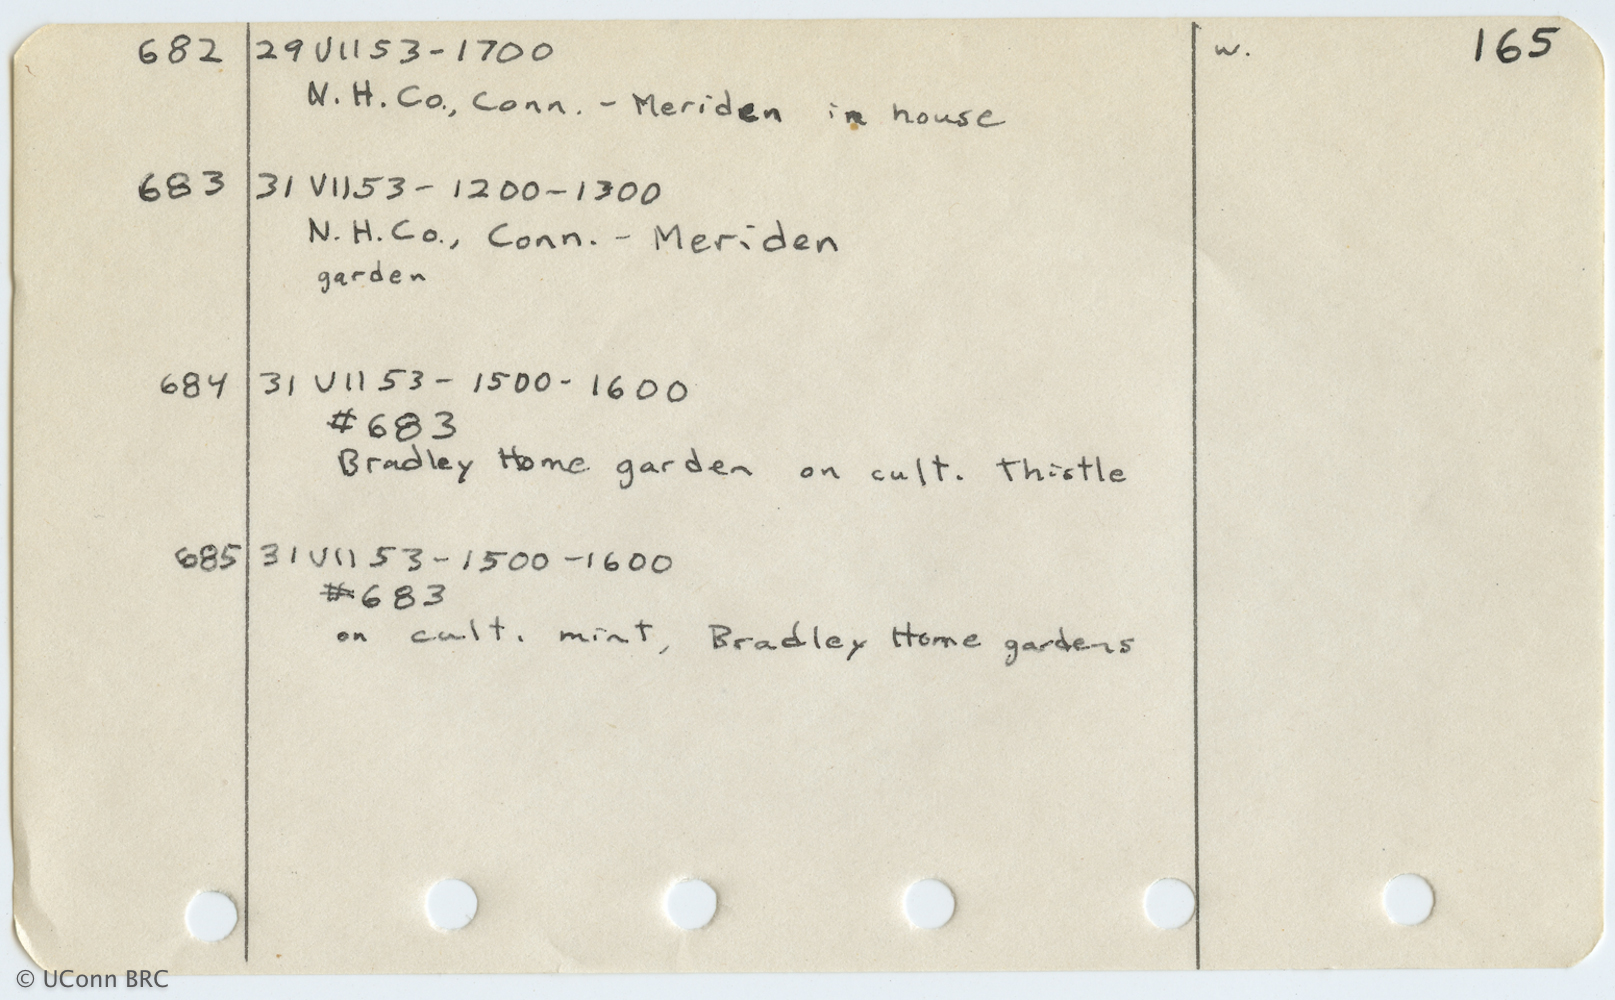 165
682 29 VII 53 - 1700 w.
N. H. Co., Conn. - Meriden in house
683 31 VII 53 - 1200 - 1300
N. H. Co., Conn. - Meriden
garden
684 31 VII 53 - 1500 - 1600
#683
Bradley Home garden on cult. Thistle
685 31 VII 53 - 1500 - 1600
#683
on cult. mint, Bradley Home gardens
© UConn BRC